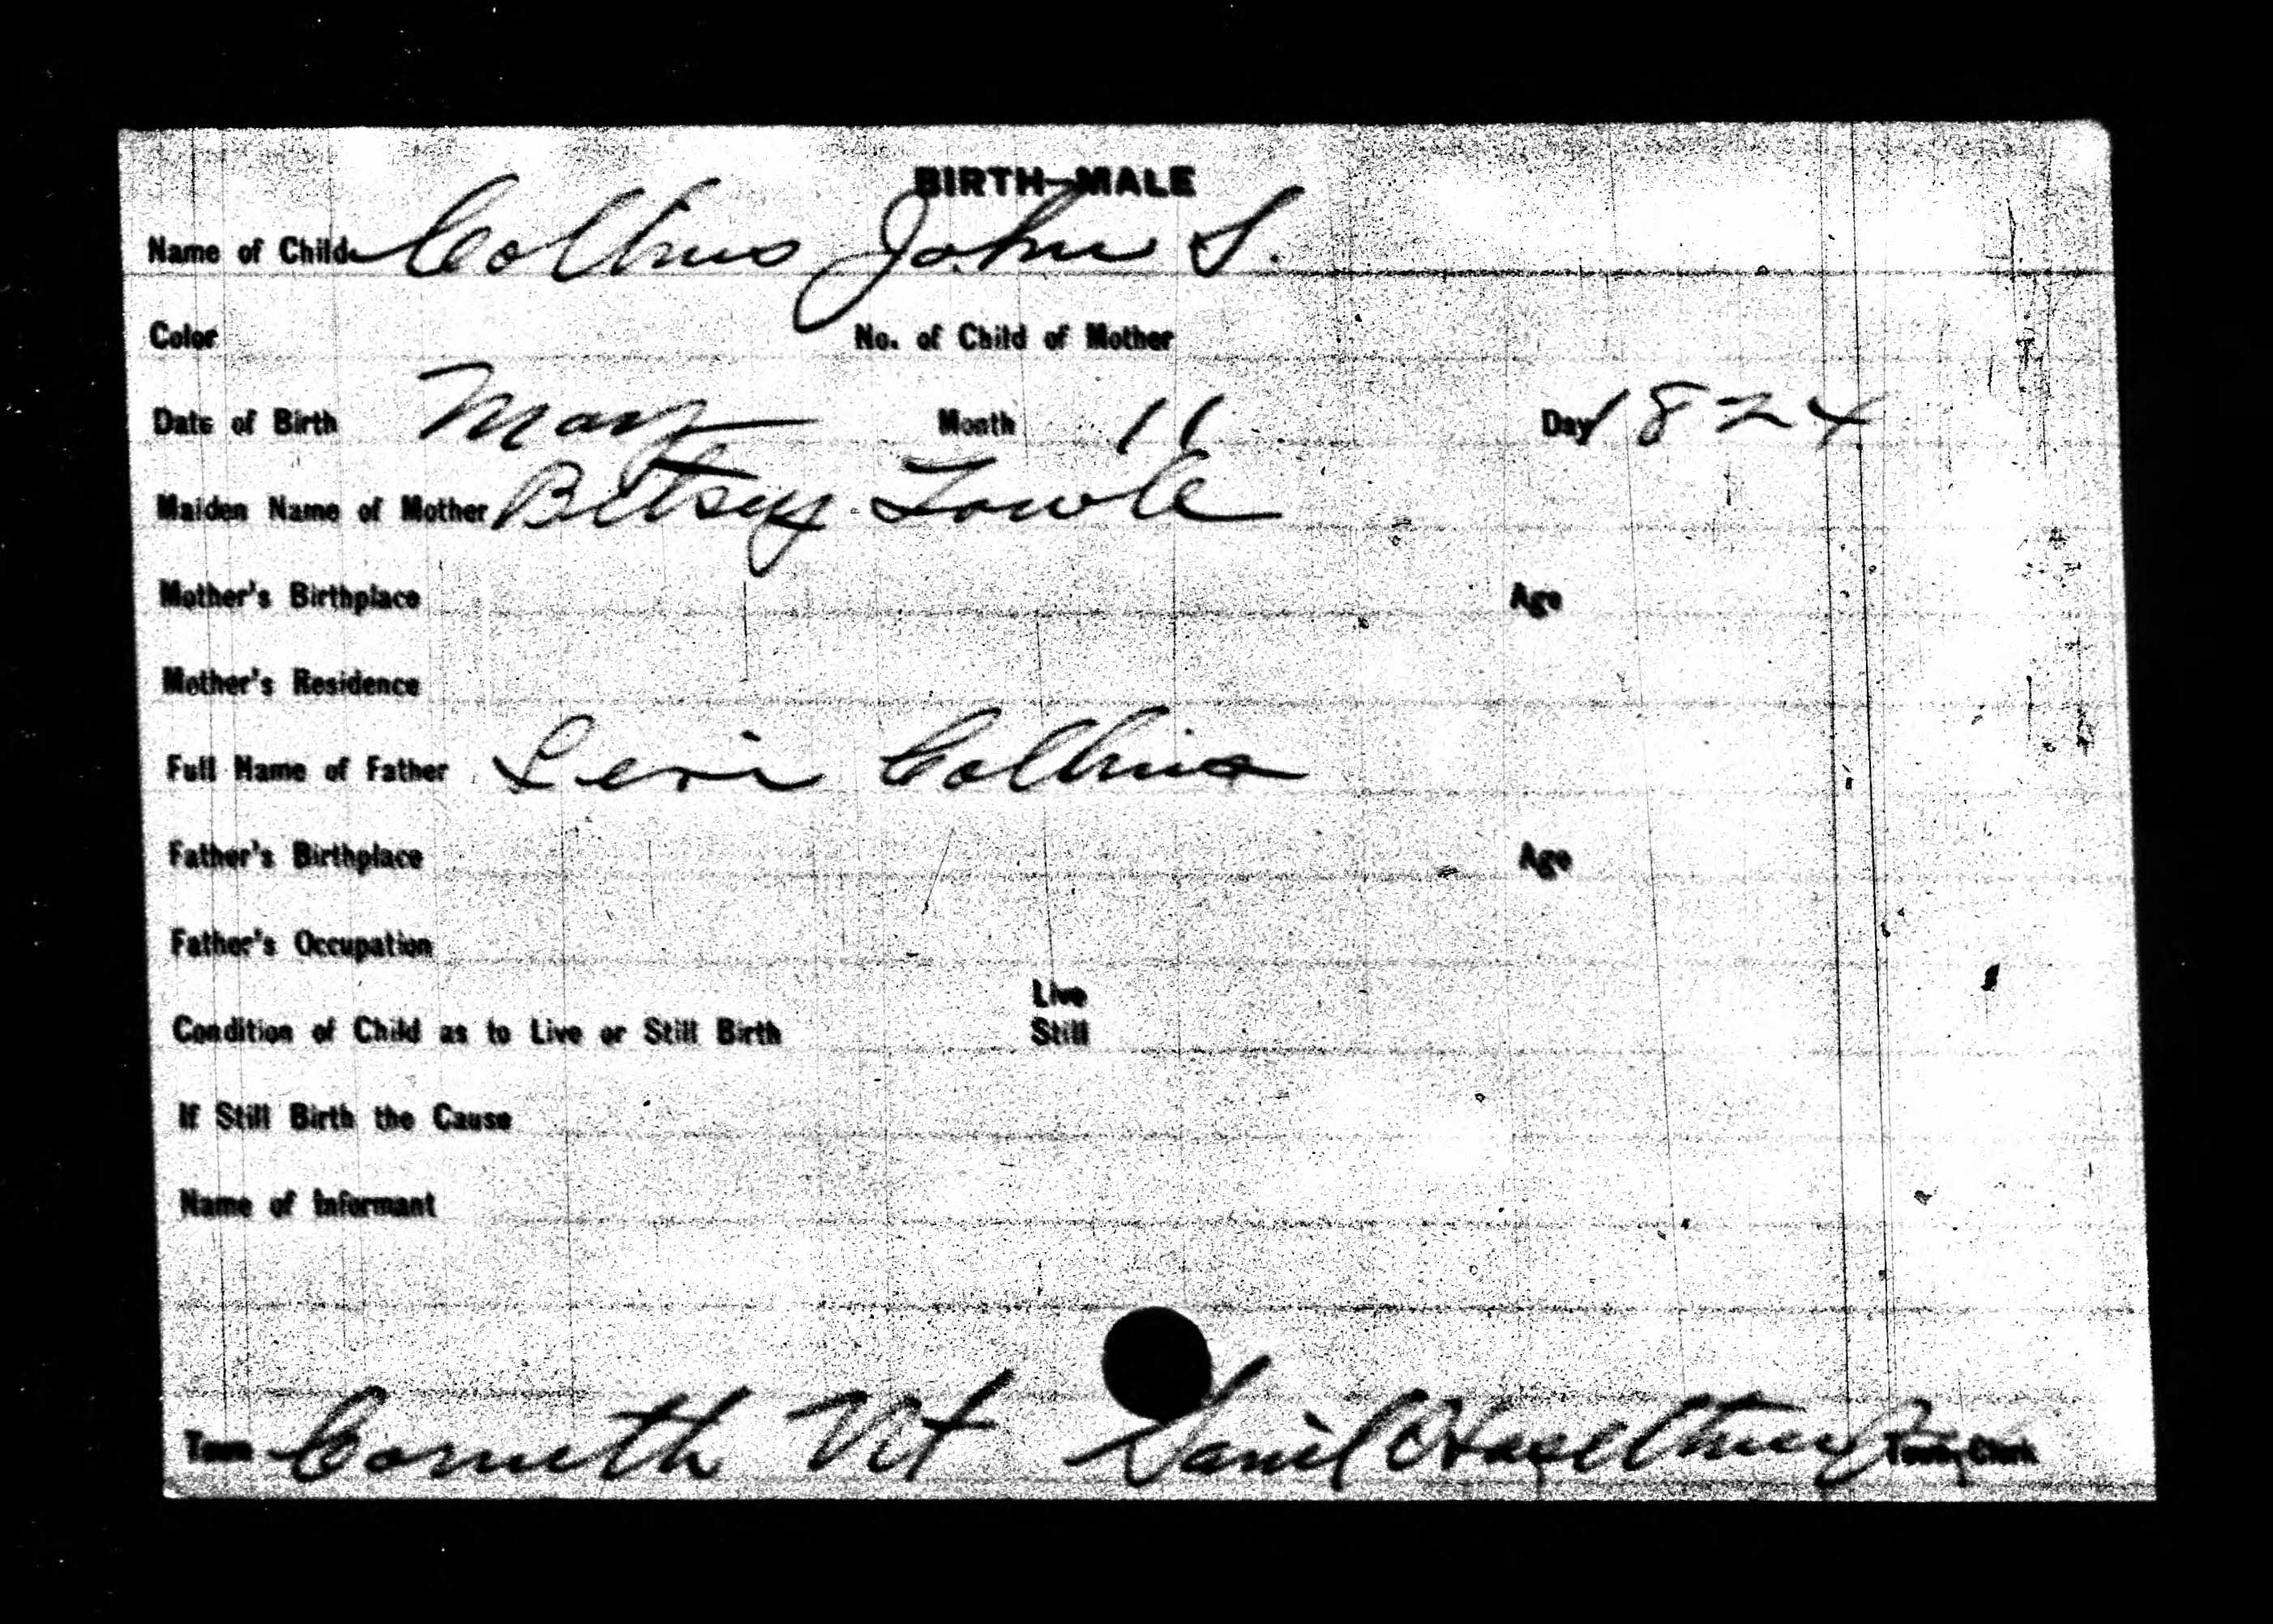 BIRTH—MALE
Name of Child Collins John S.
Color No. of Child of Mother
Date of Birth May Month 11 Day 1824
Maiden Name of Mother Betsey Towle
Mother's Birthplace Age
Mother's Residence
Full Name of Father Levi Collins
Father's Birthplace Age
Father's Occupation
Live
Condition of Child as to Live or Still Birth Still
If Still Birth the Cause
Name of Informant
Town Corinth Vt Daniel Hazeltine Town Clerk